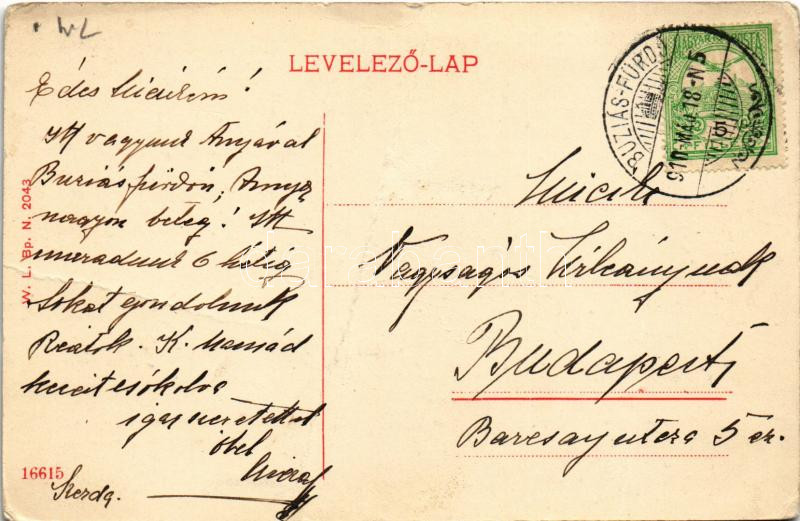 WL
LEVELEZŐ-LAP
BUZIÁS-FÜRDŐ
910 MÁJ 18 N 5
MAGYAR POSTA
Édes
Itt vagyunk Anyával
Buziásfürdőn, Anyu
nagyon beteg! Itt
maradunk 6 hétig
Sokat gondolunk
Reátok. K. Mamád
kezeit csókolva
igaz szeretettel
ölel
Szerda.
W. L. Bp. N. 2043
16615
Nagyságos Úrleánynak
Budapest
Barcsay utcza 5 sz.